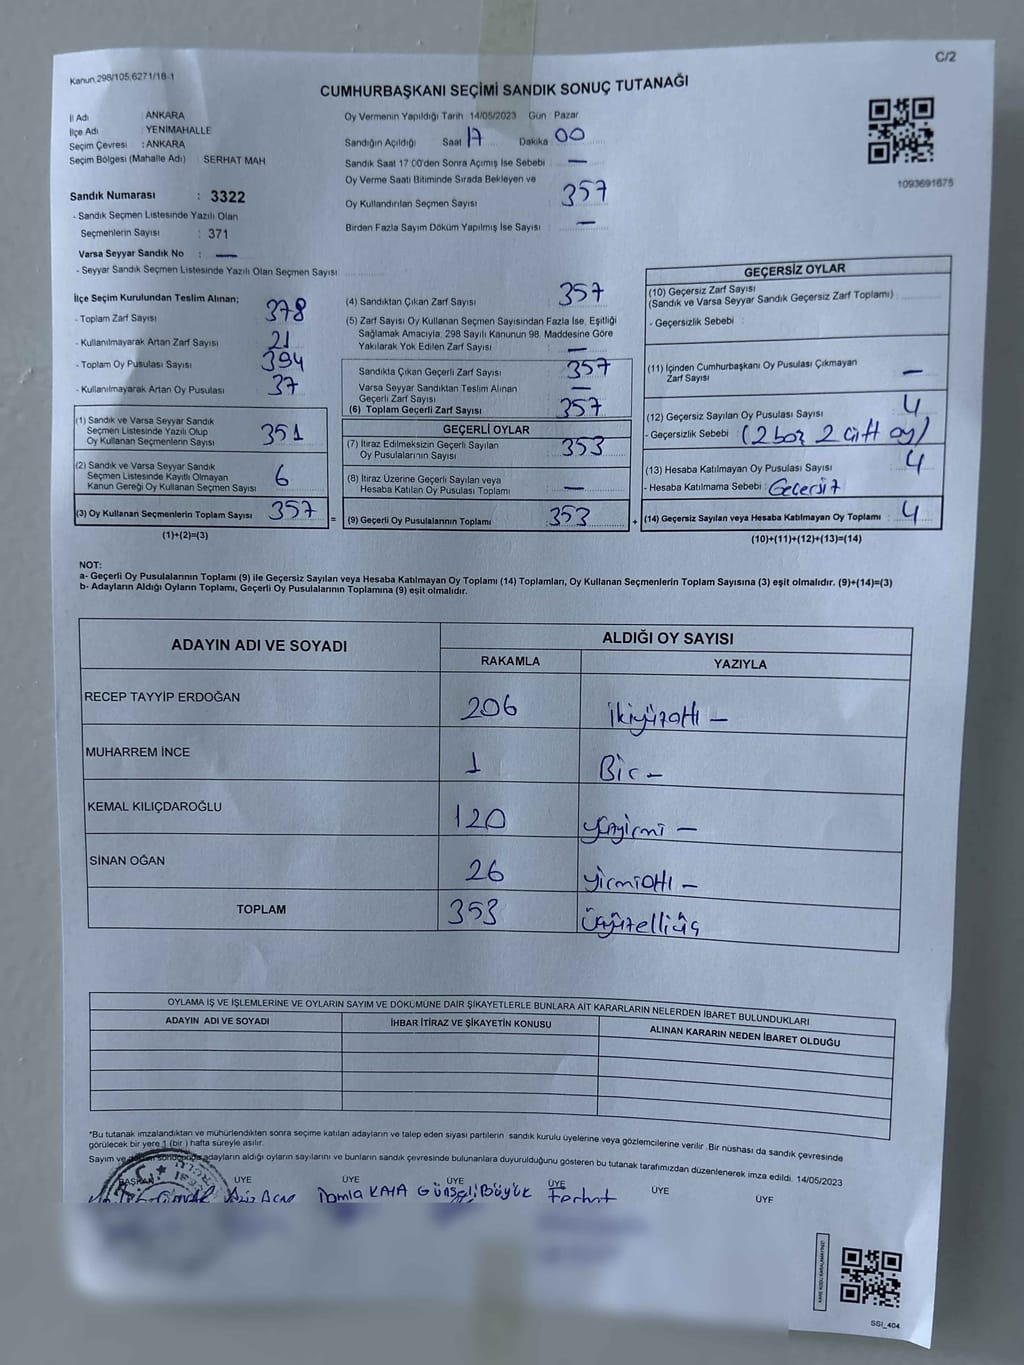 C/2
Kanun.298/105,6271/18-1
CUMHURBAŞKANI SEÇİMİ SANDIK SONUÇ TUTANAĞI
İl Adı : ANKARA
İlçe Adı : YENİMAHALLE
Seçim Çevresi : ANKARA
Seçim Bölgesi (Mahalle Adı) : SERHAT MAH
Sandık Numarası : 3322
- Sandık Seçmen Listesinde Yazılı Olan
Seçmenlerin Sayısı : 371
Varsa Seyyar Sandık No : —
- Seyyar Sandık Seçmen Listesinde Yazılı Olan Seçmen Sayısı
Oy Vermenin Yapıldığı Tarih 14/05/2023 Gün Pazar
Sandığın Açıldığı Saat 17 Dakika 00
Sandık Saat 17:00'den Sonra Açımış İse Sebebi : —
Oy Verme Saati Bitiminde Sırada Bekleyen ve
Oy Kullandırılan Seçmen Sayısı : 357
Birden Fazla Sayım Döküm Yapılmış İse Sayısı : —
1093691675
İlçe Seçim Kurulundan Teslim Alınan;
- Toplam Zarf Sayısı : 378
- Kullanılmayarak Artan Zarf Sayısı : 21
- Toplam Oy Pusulası Sayısı : 394
- Kullanılmayarak Artan Oy Pusulası : 37
(1) Sandık ve Varsa Seyyar Sandık
Seçmen Listesinde Yazılı Olup
Oy Kullanan Seçmenlerin Sayısı : 351
(2) Sandık ve Varsa Seyyar Sandık
Seçmen Listesinde Kayıtlı Olmayan
Kanun Gereği Oy Kullanan Seçmen Sayısı : 6
(3) Oy Kullanan Seçmenlerin Toplam Sayısı : 357
(1)+(2)=(3)
(4) Sandıktan Çıkan Zarf Sayısı : 357
(5) Zarf Sayısı Oy Kullanan Seçmen Sayısından Fazla İse, Eşitliği
Sağlamak Amacıyla, 298 Sayılı Kanunun 98. Maddesine Göre
Yakılarak Yok Edilen Zarf Sayısı : —
Sandıkta Çıkan Geçerli Zarf Sayısı : 357
Varsa Seyyar Sandıktan Teslim Alınan
Geçerli Zarf Sayısı : —
(6) Toplam Geçerli Zarf Sayısı : 357
GEÇERLİ OYLAR
(7) İtiraz Edilmeksizin Geçerli Sayılan
Oy Pusulalarının Sayısı : 353
(8) İtiraz Üzerine Geçerli Sayılan veya
Hesaba Katılan Oy Pusulası Toplamı : —
= (9) Geçerli Oy Pusulalarının Toplamı : 353
GEÇERSİZ OYLAR
(10) Geçersiz Zarf Sayısı
(Sandık ve Varsa Seyyar Sandık Geçersiz Zarf Toplamı) :
- Geçersizlik Sebebi :
(11) İçinden Cumhurbaşkanı Oy Pusulası Çıkmayan
Zarf Sayısı : —
(12) Geçersiz Sayılan Oy Pusulası Sayısı : 4
- Geçersizlik Sebebi : (2 boş 2 çift oy)
(13) Hesaba Katılmayan Oy Pusulası Sayısı : 4
- Hesaba Katılmama Sebebi : Geçersiz
+ (14) Geçersiz Sayılan veya Hesaba Katılmayan Oy Toplamı : 4
(10)+(11)+(12)+(13)=(14)
NOT:
a- Geçerli Oy Pusulalarının Toplamı (9) ile Geçersiz Sayılan veya Hesaba Katılmayan Oy Toplamı (14) Toplamları, Oy Kullanan Seçmenlerin Toplam Sayısına (3) eşit olmalıdır. (9)+(14)=(3)
b- Adayların Aldığı Oyların Toplamı, Geçerli Oy Pusulalarının Toplamına (9) eşit olmalıdır.
ADAYIN ADI VE SOYADI
ALDIĞI OY SAYISI
RAKAMLA YAZIYLA
RECEP TAYYİP ERDOĞAN 206 ikiyüzaltı —
MUHARREM İNCE 1 Bir —
KEMAL KILIÇDAROĞLU 120 yüzyirmi —
SİNAN OĞAN 26 yirmialtı —
TOPLAM 353 üçyüzelliüç
OYLAMA İŞ VE İŞLEMLERİNE VE OYLARIN SAYIM VE DÖKÜMÜNE DAİR ŞİKAYETLERLE BUNLARA AİT KARARLARIN NELERDEN İBARET BULUNDUKLARI
ADAYIN ADI VE SOYADI İHBAR İTİRAZ VE ŞİKAYETİN KONUSU ALINAN KARARIN NEDEN İBARET OLDUĞU
*Bu tutanak imzalandıktan ve mühürlendikten sonra seçime katılan adayların ve talep eden siyasi partilerin sandık kurulu üyelerine veya gözlemcilerine verilir .Bir nüshası da sandık çevresinde
görülecek bir yere 1 (bir ) hafta süreyle asılır.
Sayım ve sonucunda adayların aldığı oyların sayılarını ve bunların sandık çevresinde bulunanlara duyurulduğunu gösteren bu tutanak tarafımızdan düzenlenerek imza edildi. 14/05/2023
BAŞKAN ÜYE ÜYE ÜYE ÜYE ÜYE ÜYE
Damla KAYA Günseli Büyük Ferhat
SSİ_404